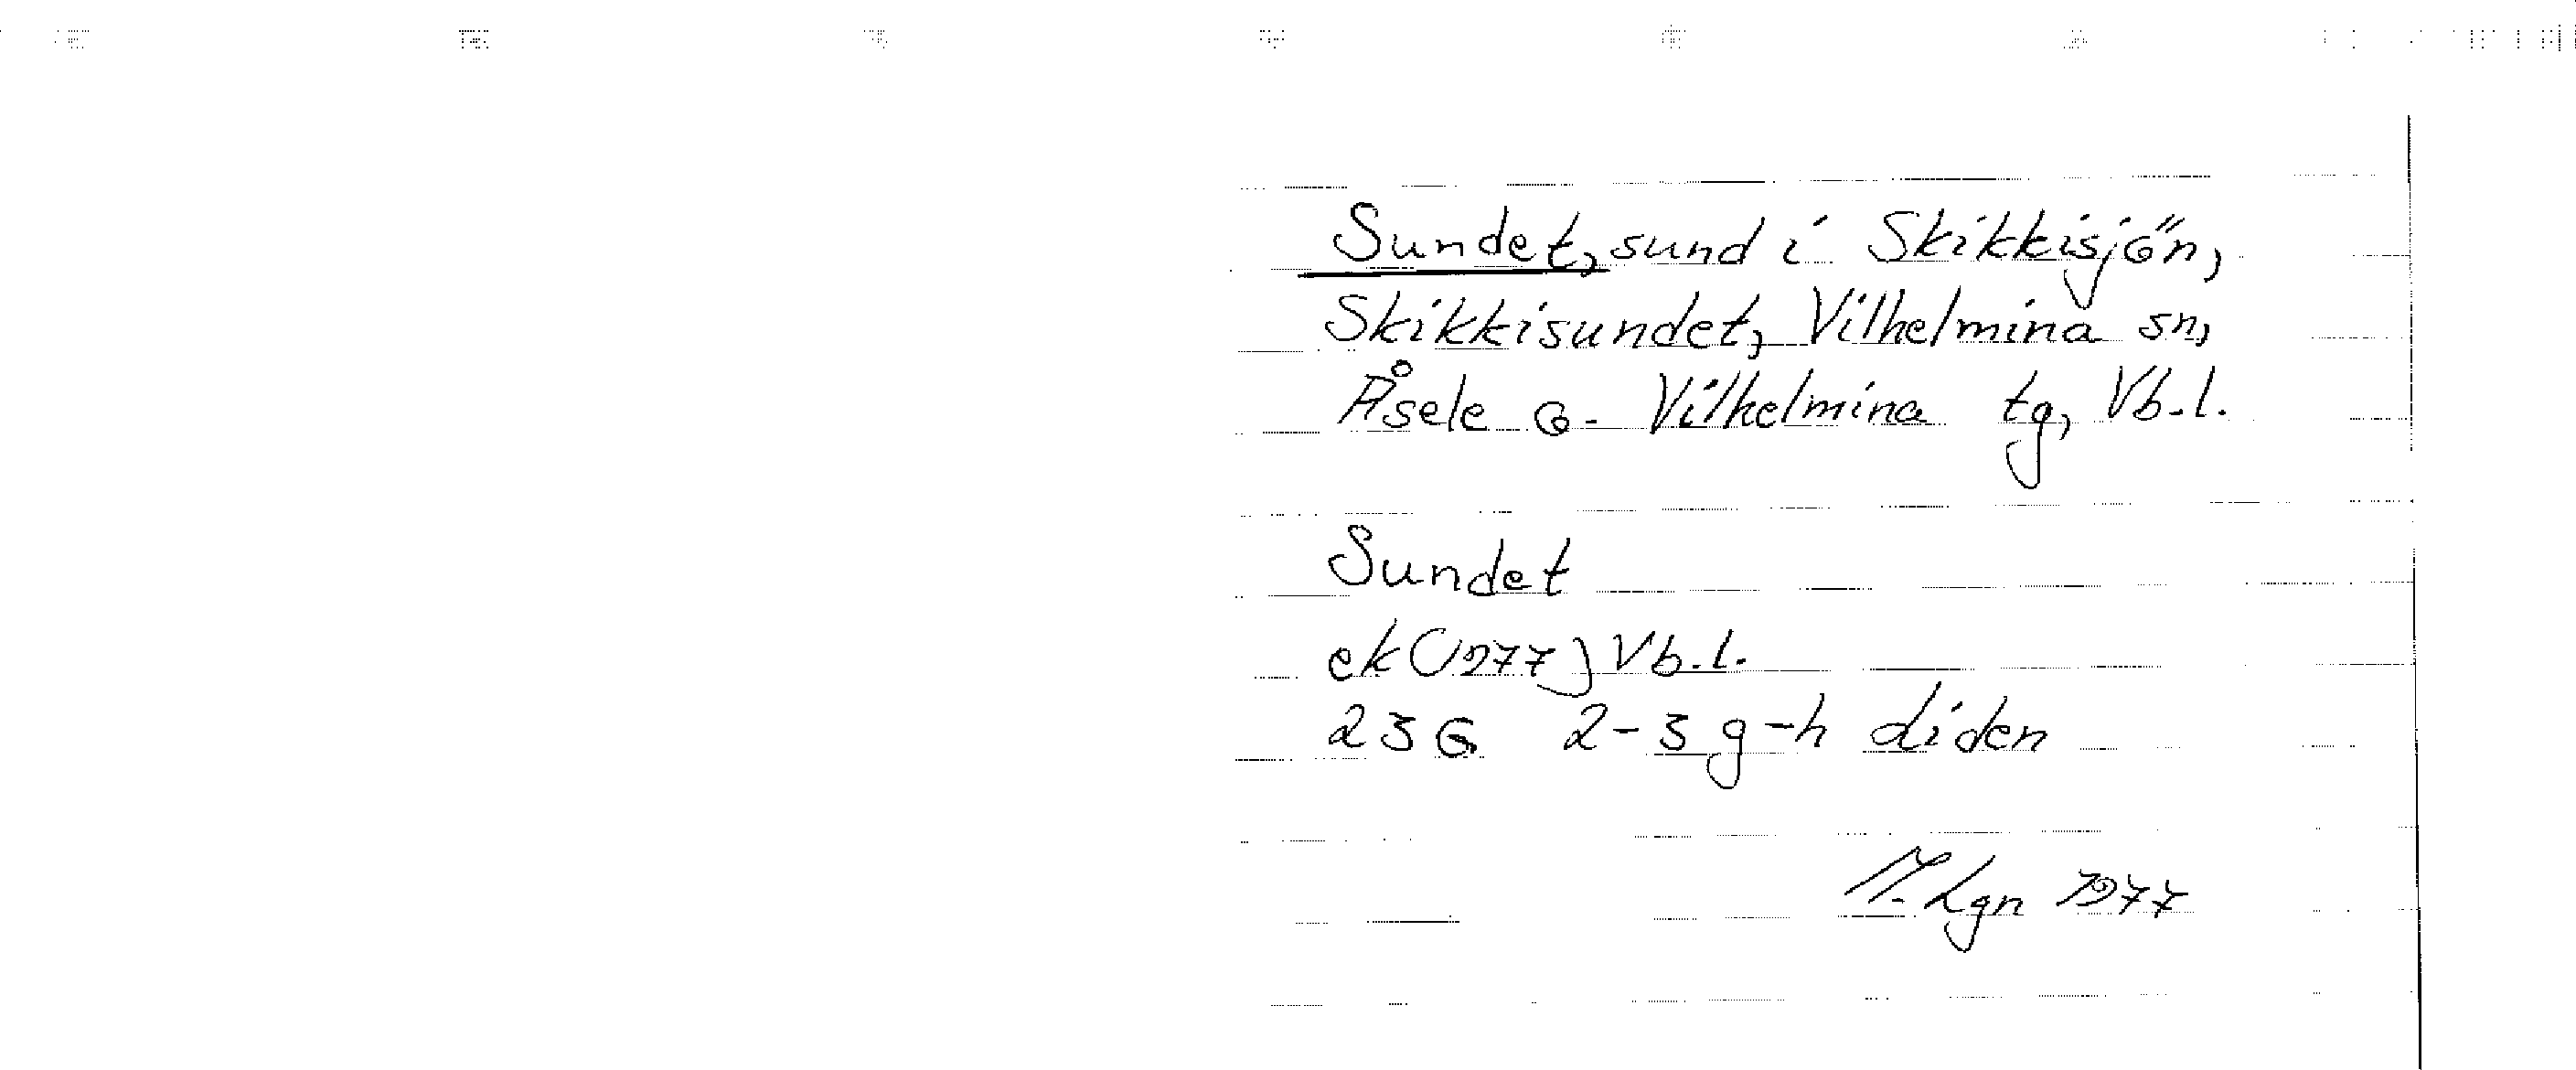 Sundet, sund i Skikkisjön,
Skikkisundet, Vilhelmina sn,
Åsele o. Vilhelmina tg, Vb.l.
Sundet
ek (1977) Vb.l.
23G 2-3 g-h Liden
M. Lgn 1977